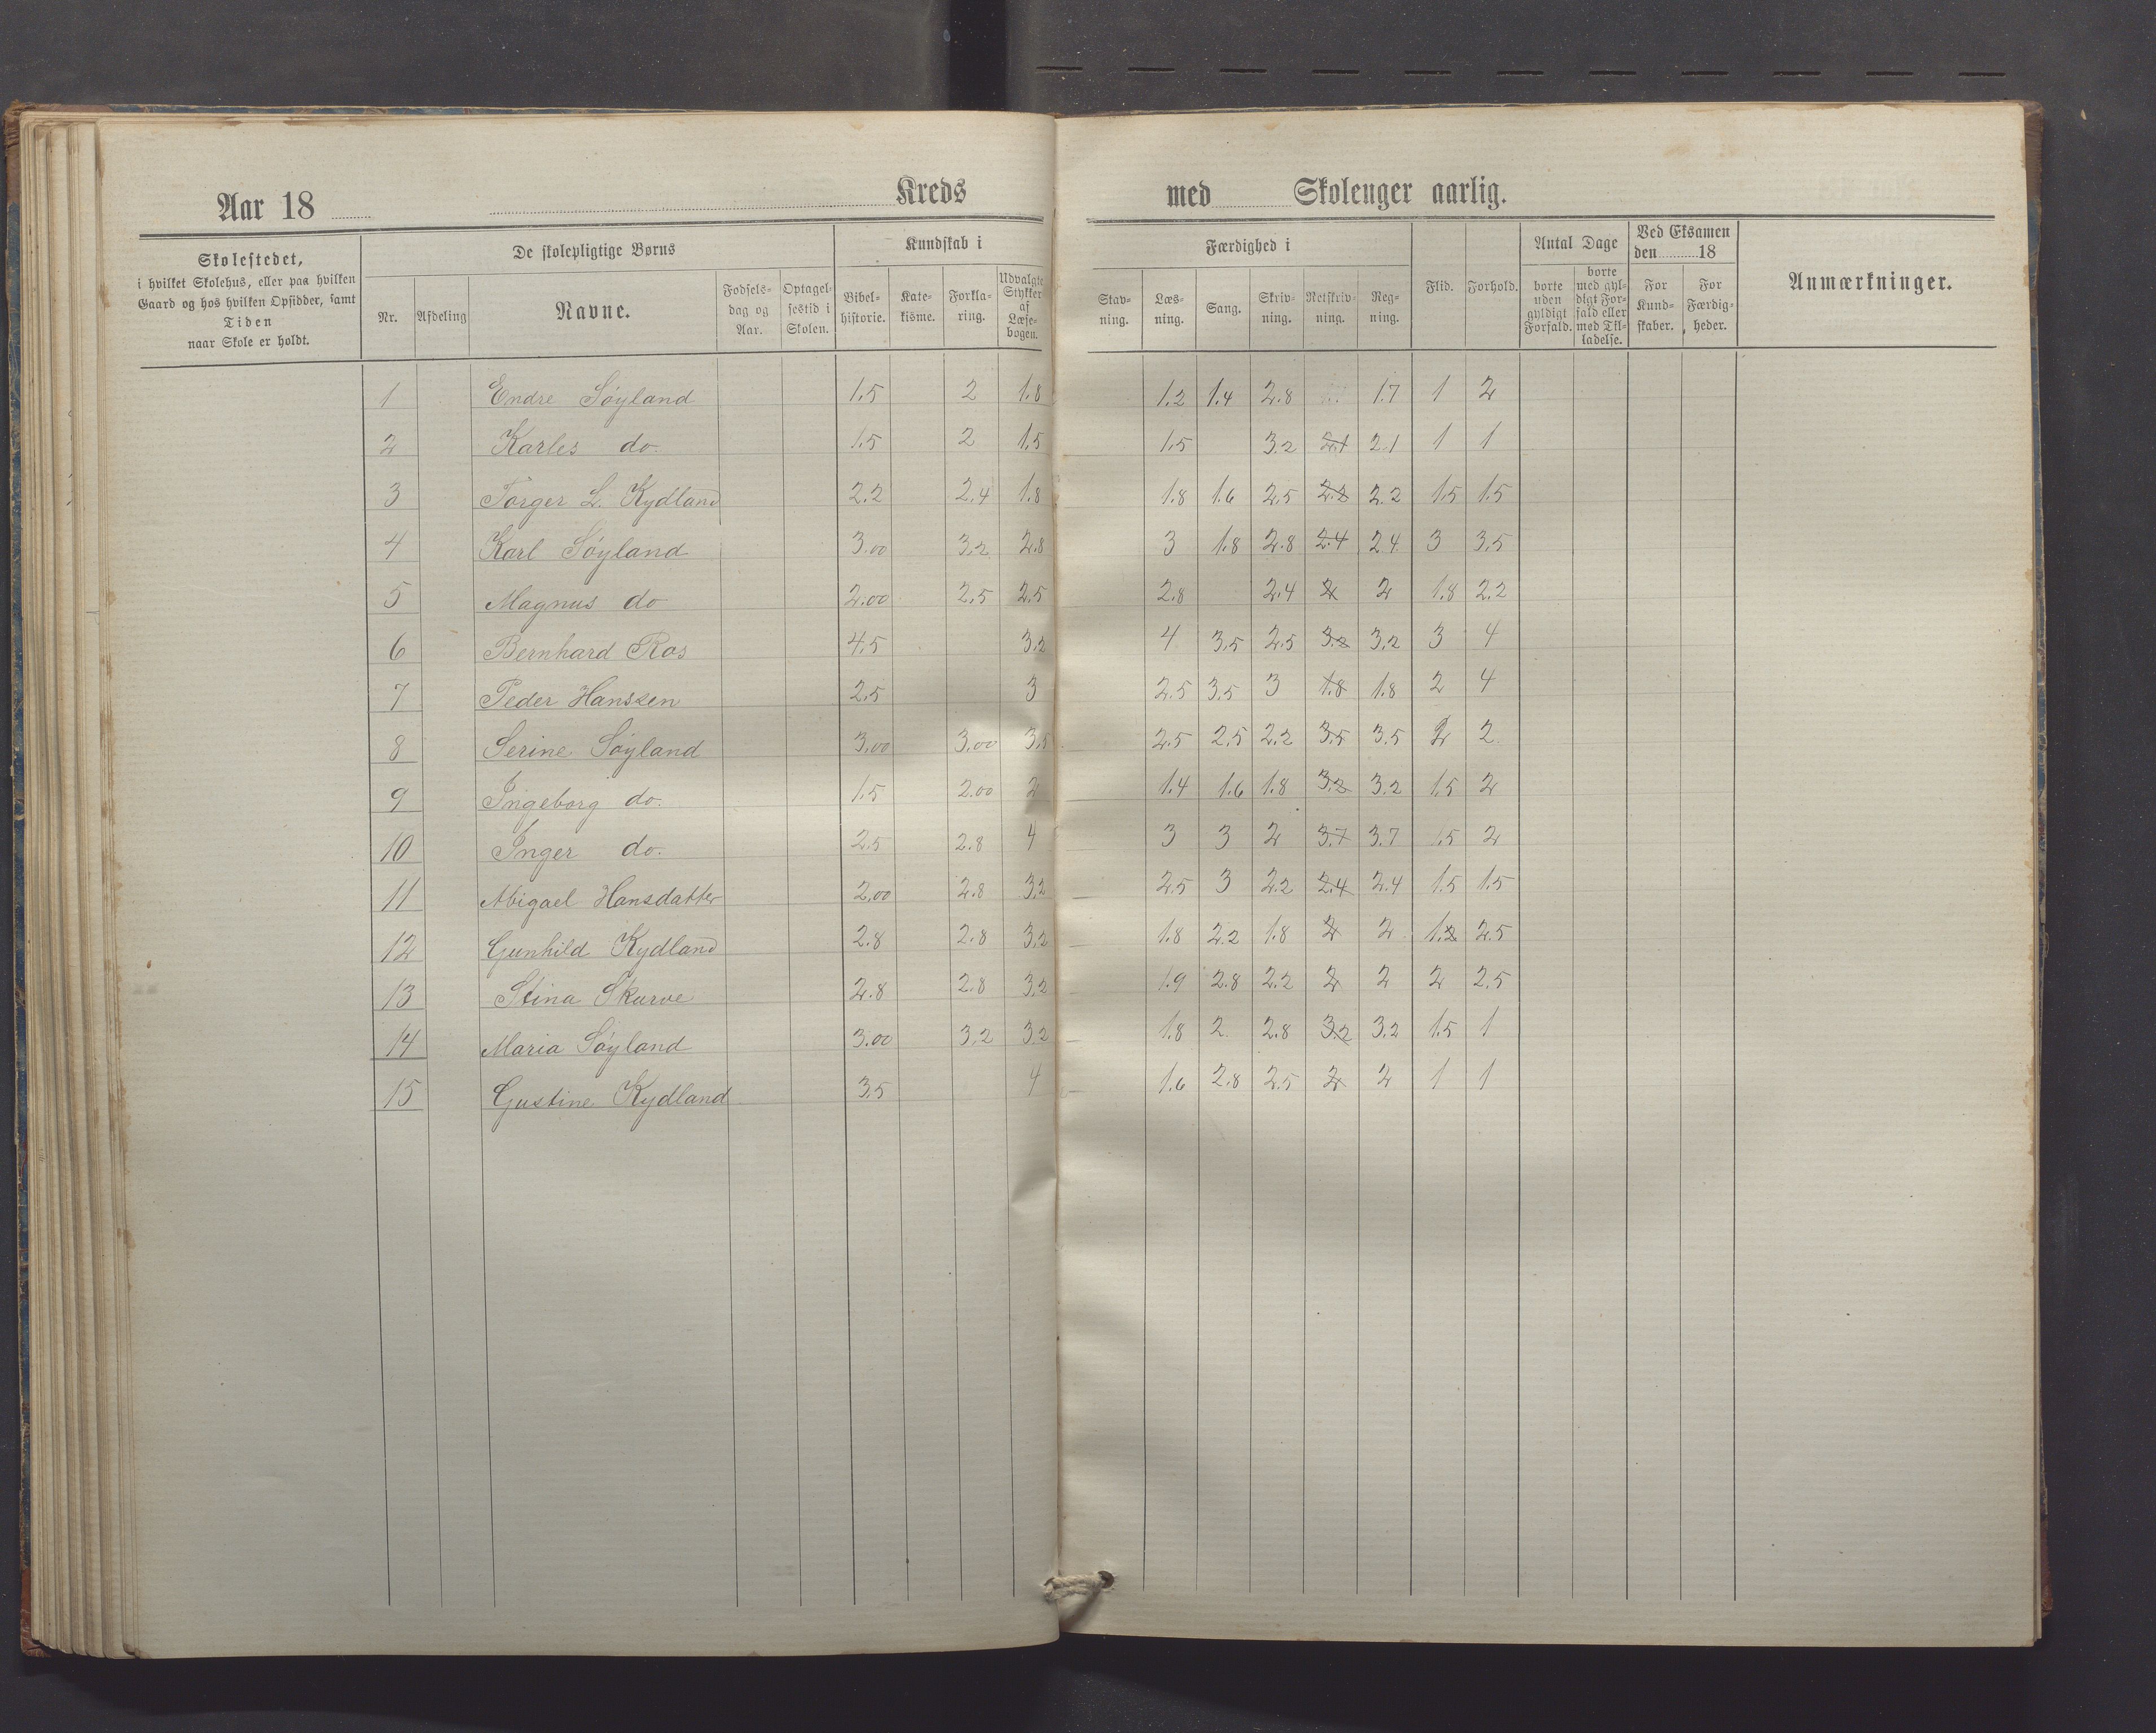 Aar 18 Kreds med Skoleuger aarlig.
Skolestedet,
i hvilket Skolehus, eller paa hvilken
Gaard og hos hvilken Opsidder, samt
Tiden
naar Skole er holdt.
De skolepligtige Børns
Nr. Afdeling Navne. Fødsels-dag og Aar. Optagel-sestid i Skolen.
Kundskab i
Bibel-historie. Kate-kisme. Forkla-ring. Udvalgte Stykker af Læse-bogen.
Færdighed i
Stav-ning. Læs-ning. Sang. Skriv-ning. Retskriv-ning. Reg-ning.
Flid. Forhold.
Antal Dage
borte uden gyldigt Forfald. borte med gyl-digt For-fald eller med Til-ladelse.
Ved Eksamen
den 18
For Kund-skaber. For Færdig-heder.
Anmærkninger.
1 Endre Søyland 1.5 2 1.8 1.2 1.4 2.8 1.7 1 2
2 Karles do. 1.5 2 1.5 1.5 3.2 2.1 2.1 1 1
3 Torger L. Kydland 2.2 2.4 1.8 1.8 1.6 2.5 2.2 2.2 1.5 1.5
4 Karl Søyland 3.00 3.2 2.8 3 1.8 2.8 2.4 2.4 3 3.5
5 Magnus do 2.00 2.5 2.5 2.8 2.4 2 2 1.8 2.2
6 Bernhard Ros 4.5 3.2 4 3.5 2.5 3.2 3.2 3 4
7 Peder Hanssen 2.5 3 2.5 3.5 3 1.8 1.8 2 4
8 Serine Søyland 3.00 3.00 3.5 2.5 2.5 2.2 3.5 3.5 2 2
9 Ingeborg do. 1.5 2.00 2 1.4 1.6 1.8 3.2 3.2 1.5 2
10 Inger do. 2.5 2.8 4 3 3 2 3.7 3.7 1.5 2
11 Abigael Hansdatter 2.00 2.8 3.2 2.5 3 2.2 2.4 2.4 1.5 1.5
12 Gunhild Kydland 2.8 2.8 3.2 1.8 2.2 1.8 2 2 1.2 2.5
13 Stina Skurve 2.8 2.8 3.2 1.9 2.8 2.2 2 2 2 2.5
14 Maria Søyland 3.00 3.2 3.2 1.8 2 2.8 3.2 3.2 1.5 1
15 Gustine Kydland 3.5 4 1.6 2.8 2.5 2 2 1 1